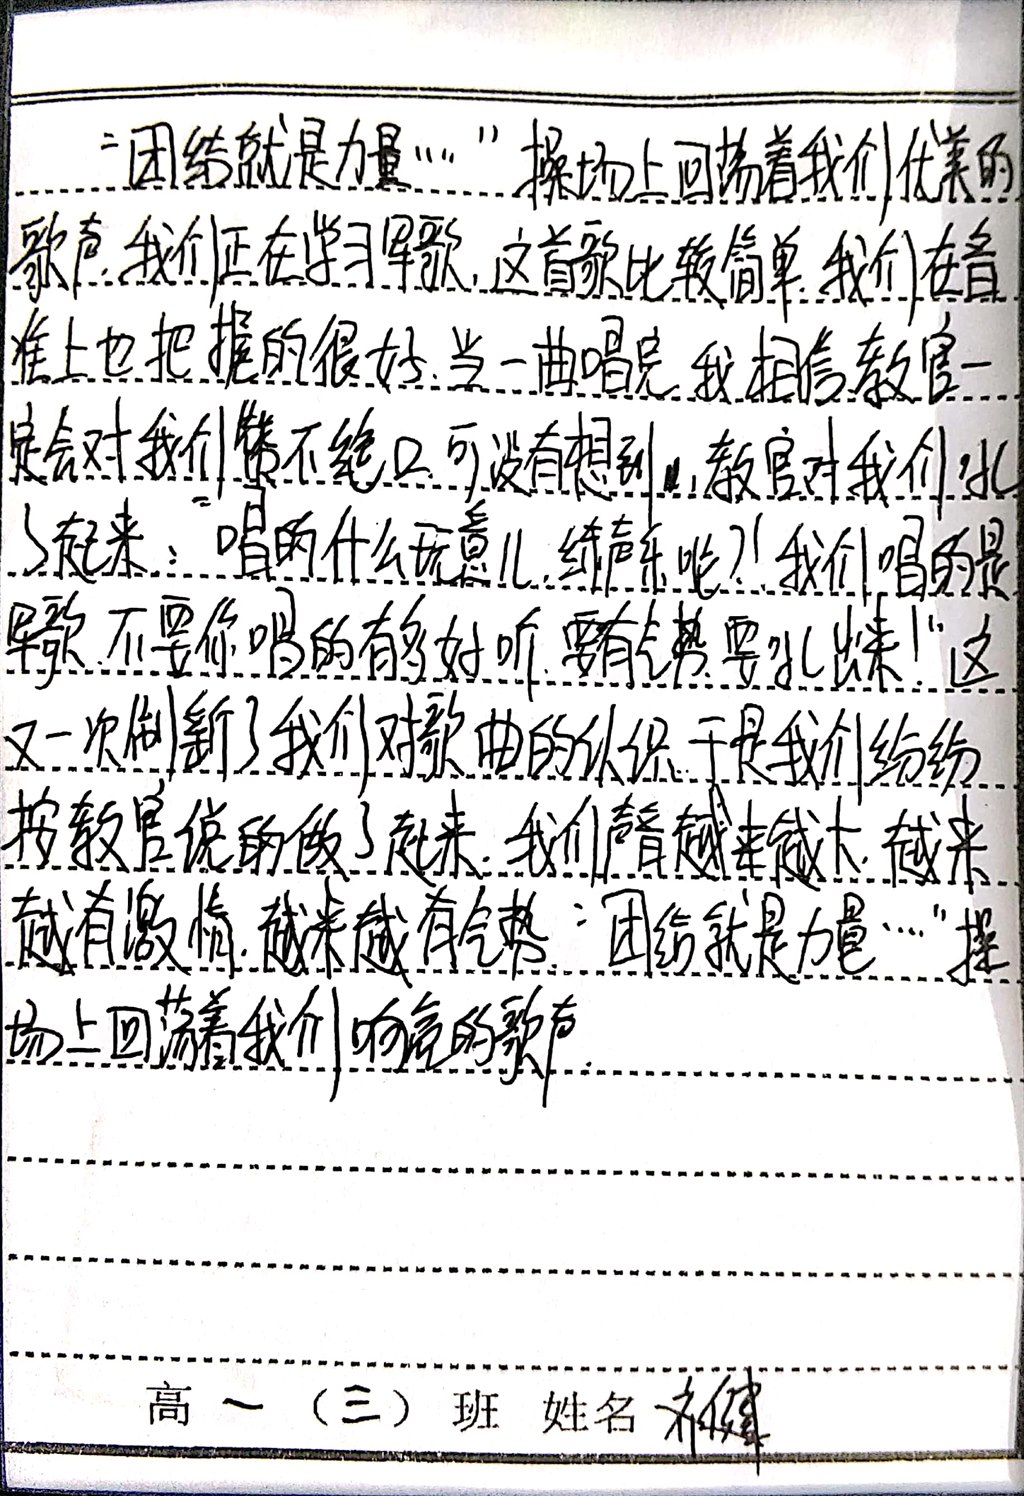 “团结就是力量……”操场上回荡着我们优美的
歌声,我们正在学习军歌,这首歌比较简单,我们在音
准上也把握的很好,当一曲唱完,我相信教官一
定会对我们赞不绝口,可没有想到,教官对我们吼
了起来:“唱的什么玩意儿,练声乐呢?!我们唱的是
军歌,不要你唱的有多好听,要有气势,要吼出来!”这
又一次刷新了我们对歌曲的认识,于是我们纷纷
按教官说的做了起来,我们声音越来越大,越来
越有激情,越来越有气势,“团结就是力量……”操
场上回荡着我们响亮的歌声.
高一(三)班 姓名